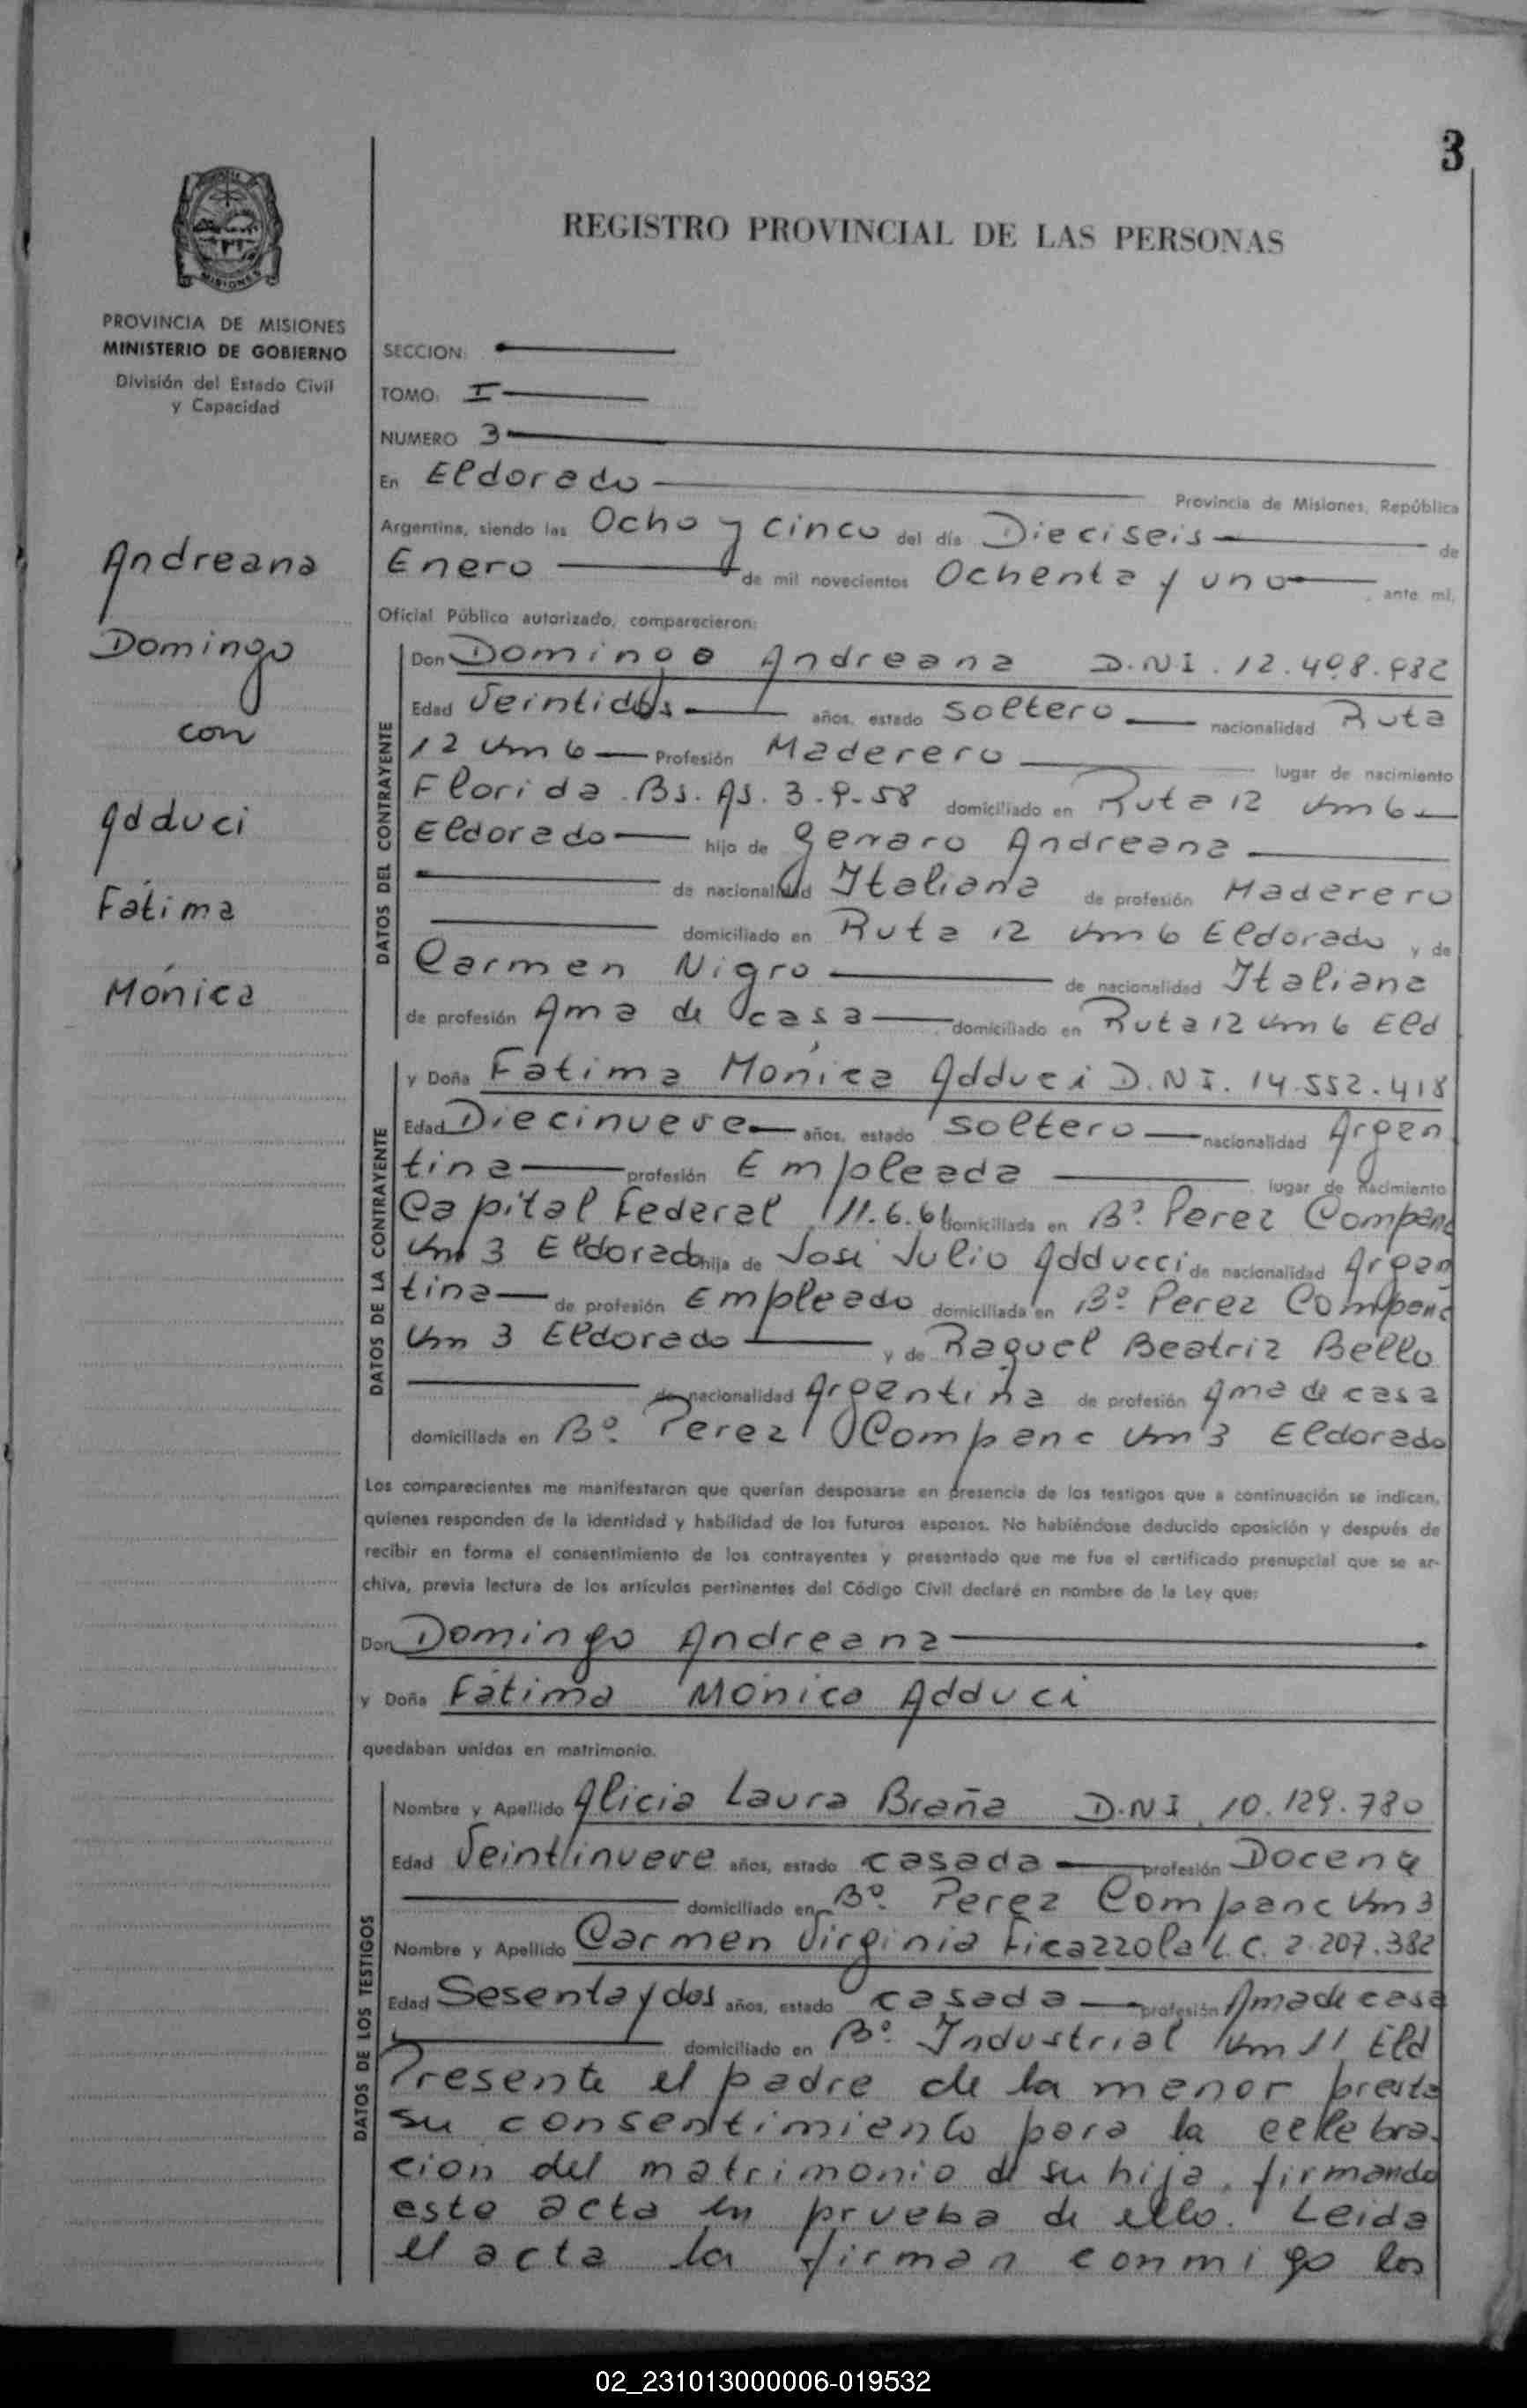 3
REGISTRO PROVINCIAL DE LAS PERSONAS
MISIONES
PROVINCIA DE MISIONES
MINISTERIO DE GOBIERNO
División del Estado Civil
y Capacidad
Andreana
Domingo
con
Adduci
Fátima
Mónica
SECCION:
TOMO: I
NUMERO 3
En Eldorado Provincia de Misiones, República
Argentina, siendo las Ocho y cinco del día Dieciseis de
Enero de mil novecientos Ochenta y uno, ante mi,
Oficial Público autorizado, comparecieron:
DATOS DEL CONTRAYENTE
Don Domingo Andreana D.N.I. 12.408.982
Edad Veintidós años, estado soltero nacionalidad Ruta
12 Km 6 Profesión Maderero lugar de nacimiento
Florida. Bs. As. 3.9.58 domiciliado en Ruta 12 Km 6
Eldorado hijo de Genaro Andreana
de nacionalidad Italiana de profesión Maderero
domiciliado en Ruta 12 Km 6 Eldorado y de
Carmen Nigro de nacionalidad Italiana
de profesión Ama de casa domiciliado en Ruta 12 Km 6 Eld
DATOS DE LA CONTRAYENTE
y Doña Fátima Mónica Adduci D.N.I. 14.552.418
Edad Diecinueve años, estado soltero nacionalidad Argen
tina profesión Empleada lugar de nacimiento
Capital Federal 11.6.61 domiciliada en Bº. Perez Companc
Km 3 Eldorado hija de José Julio Adducci de nacionalidad Argen
tina de profesión Empleado domiciliada en Bº. Perez Companc
Km 3 Eldorado y de Raquel Beatriz Bello
de nacionalidad Argentina de profesión Ama de casa
domiciliada en Bº. Perez Companc Km 3 Eldorado
Los comparecientes me manifestaron que querían desposarse en presencia de los testigos que a continuación se indican,
quienes responden de la identidad y habilidad de los futuros esposos. No habiéndose deducido oposición y después de
recibir en forma el consentimiento de los contrayentes y presentado que me fue el certificado prenupcial que se ar-
chiva, previa lectura de los artículos pertinentes del Código Civil declaré en nombre de la Ley que:
Don Domingo Andreana
y Doña Fátima Mónica Adduci
quedaban unidos en matrimonio.
DATOS DE LOS TESTIGOS
Nombre y Apellido Alicia Laura Braña D.N.I. 10.129.780
Edad Veintinueve años, estado casada profesión Docente
domiciliado en Bº. Perez Companc Km 3
Nombre y Apellido Carmen Virginia Ficazzola L.C. 2.207.382
Edad Sesenta y dos años, estado casada profesión Ama de casa
domiciliado en Bº. Industrial Km 11 Eld
Presente el padre de la menor presta
su consentimiento para la celebra-
cion del matrimonio de su hija, firmando
esta acta en prueba de ello. Leida
el acta la firman conmigo los
02_231013000006-019532